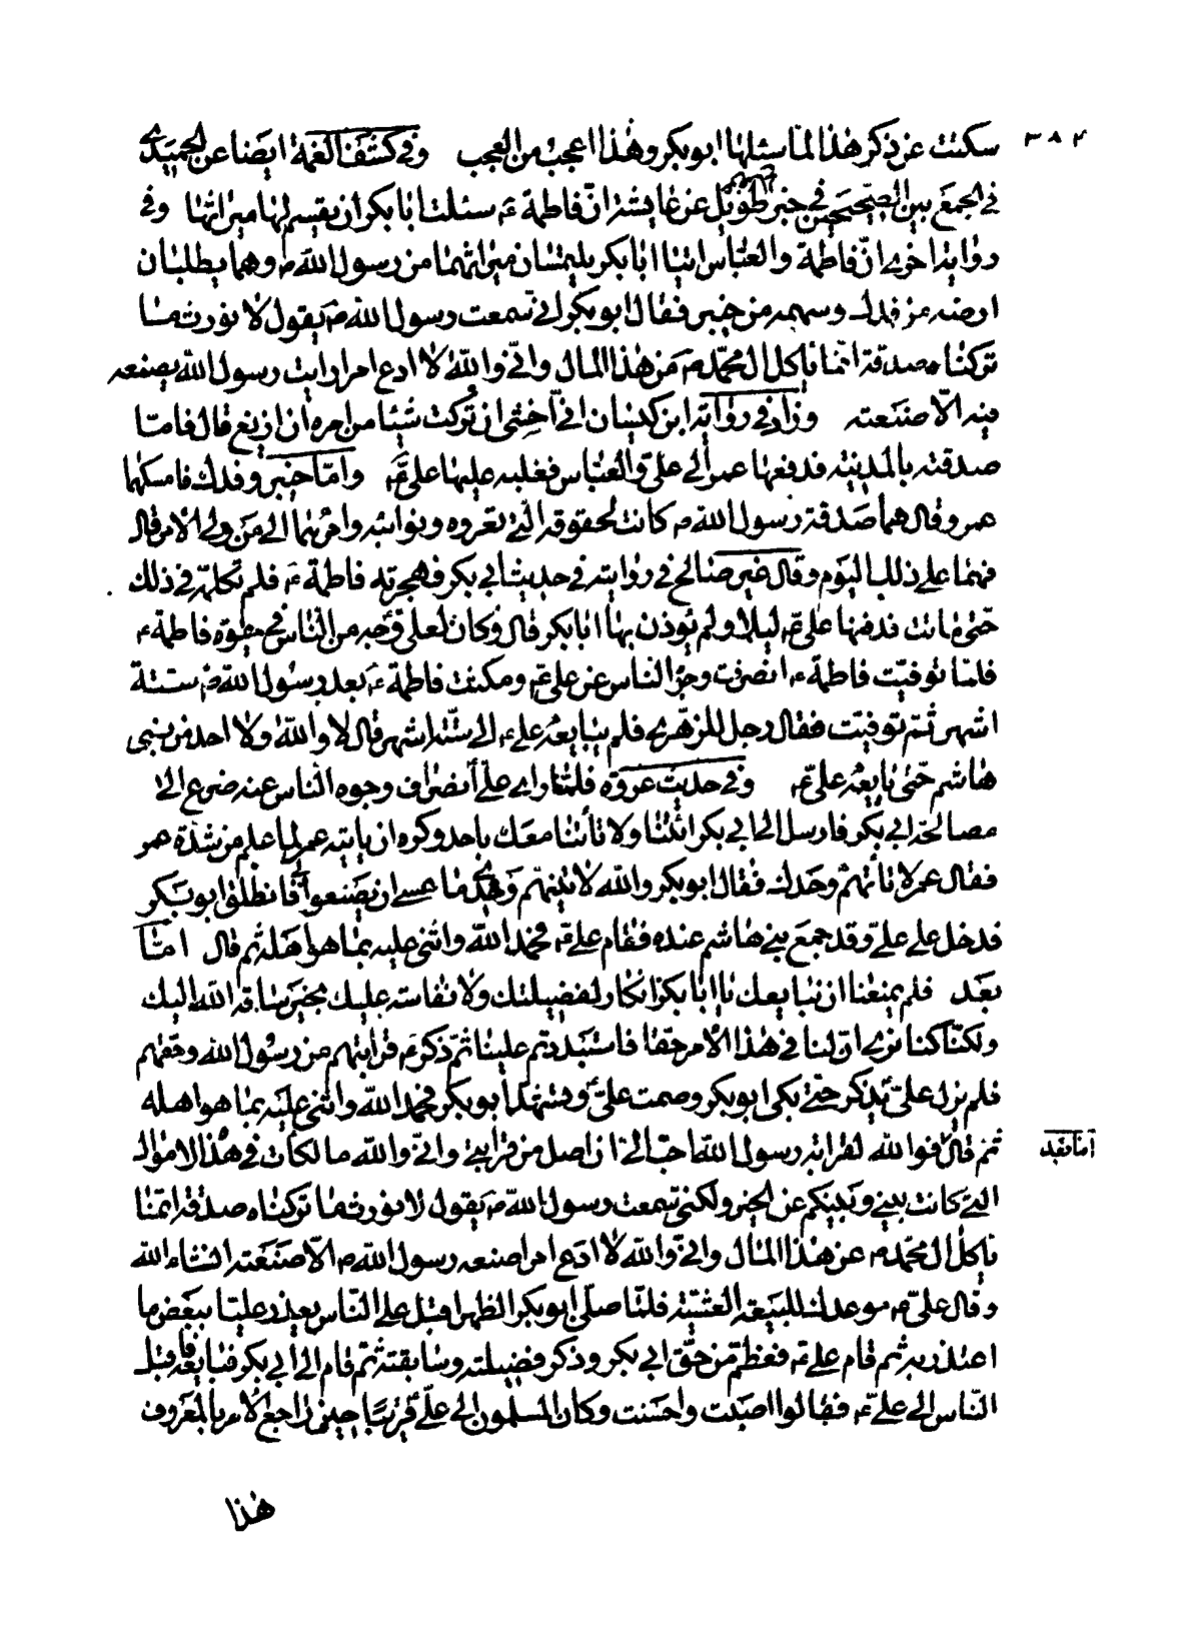 ٣٨٤
سكنت عن ذكر هذا لما سئلها ابو بكر وهذا اعجب من العجب وفى كشف الغمة ايضا عن الحميدى
فى الجمع بين الصحيحين فى خبر طويل عن عايشة انّ فاطمة ع سئلت ابا بكر ان يقسم لها ميراثها وفى
رواية اخرى انّ فاطمة والعباس اتيا ابا بكر يلتمسان ميراثهما من رسول الله ص وهما يطلبان
ارضه من فدك وسهمه من خيبر فقال ابو بكر انى سمعت رسول الله ص يقول لا نورث ما
تركناه صدقة انّما ياكل ال محمّد ص من هذا المال وانّى والله لا ادع امرا رايت رسول الله يصنعه
فيه الّا صنعته وزاد فى رواية ابن كيسان انى اخشى ان تركت شيئا من امره ان ازيغ قال فامّا
صدقته بالمدينة فدفعها عمر الى علىّ والعباس فغلبه عليها علىّ ع وامّا خيبر وفدك فامسكها
عمر وقال هما صدقة رسول الله ص كانت لحقوقه التى تعروه ونوائبه وامرهما الى من ولى الامر قال
فهما على ذلك اليوم وقال غير صالح فى روايته فى حديث ابى بكر فهجرته فاطمة ع فلم تكلمه فى ذلك
حتى ماتت فدفنها علىّ ع ليلا ولم يؤذن بها ابا بكر قال وكان لعلى وجه من الناس فى حيوة فاطمة ع
فلمّا توفيّت فاطمة ع انصرفت وجوه الناس عن علىّ ع ومكثت فاطمة ع بعد رسول الله ص ستة
اشهر ثمّ توفيّت فقال رجل للزهرى فلم يبايعه على ع الى ستة اشهر قال لا والله ولا احد من بنى
هاشم حتى بايعه علىّ ع وفى حديث عروة فلمّا راى علىّ انصراف وجوه الناس عنه ضرع الى
مصالحة ابى بكر فارسل الى ابى بكر ائتنا ولا تأتنا معك باحد وكره ان ياتيه عمر لما علم من شدّة عمر
فقال عمر لا تأتهم وحدك فقال ابو بكر والله لاتينهم وحدى ما عسى ان يصنعوا بى فانطلق ابو بكر
فدخل على علىّ وقد جمع بنى هاشم عنده فقام علىّ ع فحمد الله واثنى عليه بما هو اهله ثم قال امّا
بعد فلم يمنعنا ان نبايعك يا ابا بكر انكار لفضيلتك ولا نفاسة عليك بخير ساقه الله اليك
ولكنّا كنّا نرى ان لنا فى هذا الامر حقا فاستبددتم علينا ثمّ ذكر ع قرابتهم من رسول الله وحقهم
فلم يزل علىّ يذكر حتى بكى ابو بكر وصمت علىّ وتشهّد ابو بكر فحمد الله واثنى عليه بما هو اهله
ثم قال فوالله لقرابة رسول الله احبّ الىّ ان اصل من قرابتى وانّى والله ما لكأت فى هذا الاموال امّا بعد
التى كانت بينى وبينكم عن الخير ولكنى سمعت رسول الله ص يقول لا نورث ما تركناه صدقة انّما
ياكل ال محمّد ص عن هذا المال وانّى والله لا ادع امرا صنعه رسول الله ص الّا صنعته انشاء الله
وقال علىّ ع موعدك للبيعة العشيّة فلمّا صلّى ابو بكر الظهر اقبل على النّاس يعذر عليّا ببعض ما
اعتذر به ثم قام على ع فعظم من حقّ ابى بكر وذكر فضيلته وسابقته ثمّ قام الى ابى بكر فبايعه فاقبل
النّاس الى علىّ ع فقالوا اصبت واحسنت وكان المسلمون الى علىّ قريبا حين راجع الامر بالمعروف
هذا